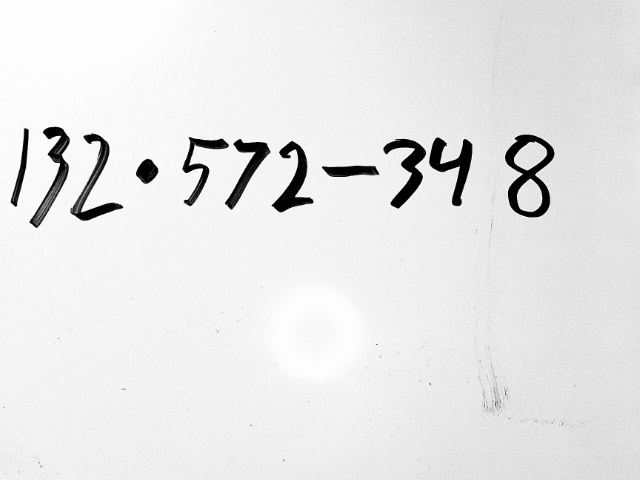 132·572-348